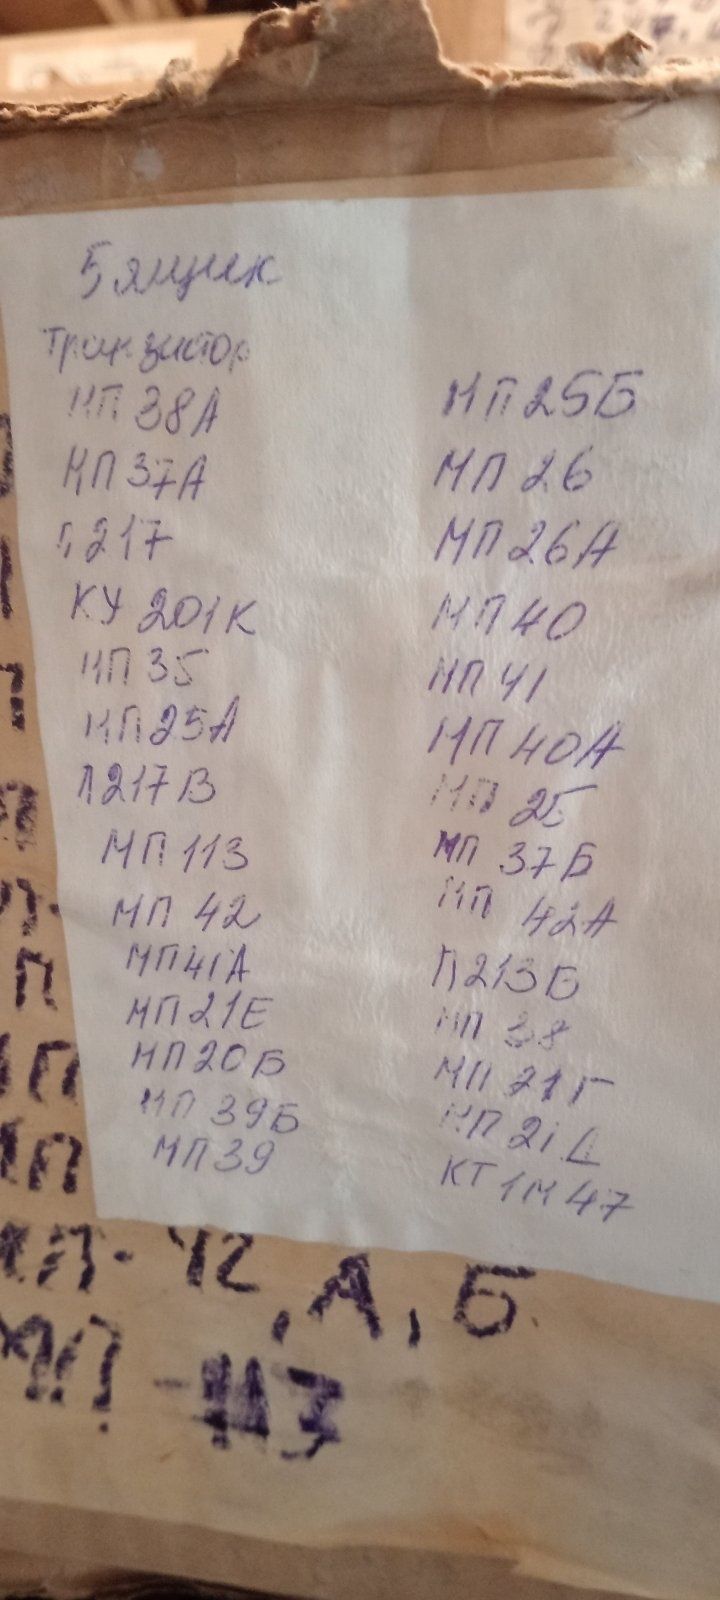 5 ящик
Транзистор
МП 38А
МП 37А
П217
КУ 201К
МП 35
МП 25А
П217В
МП 113
МП 42
МП41А
МП 21Е
МП20Б
МП 39Б
МП 39
МП 25Б
МП 26
МП 26А
МП 40
МП 41
МП 40А
МП 25
МП 37Б
МП 42А
П213Б
МП 38
МП 21Г
МП 21Д
КТ 1М 47
МП-42, А, Б
МП-113